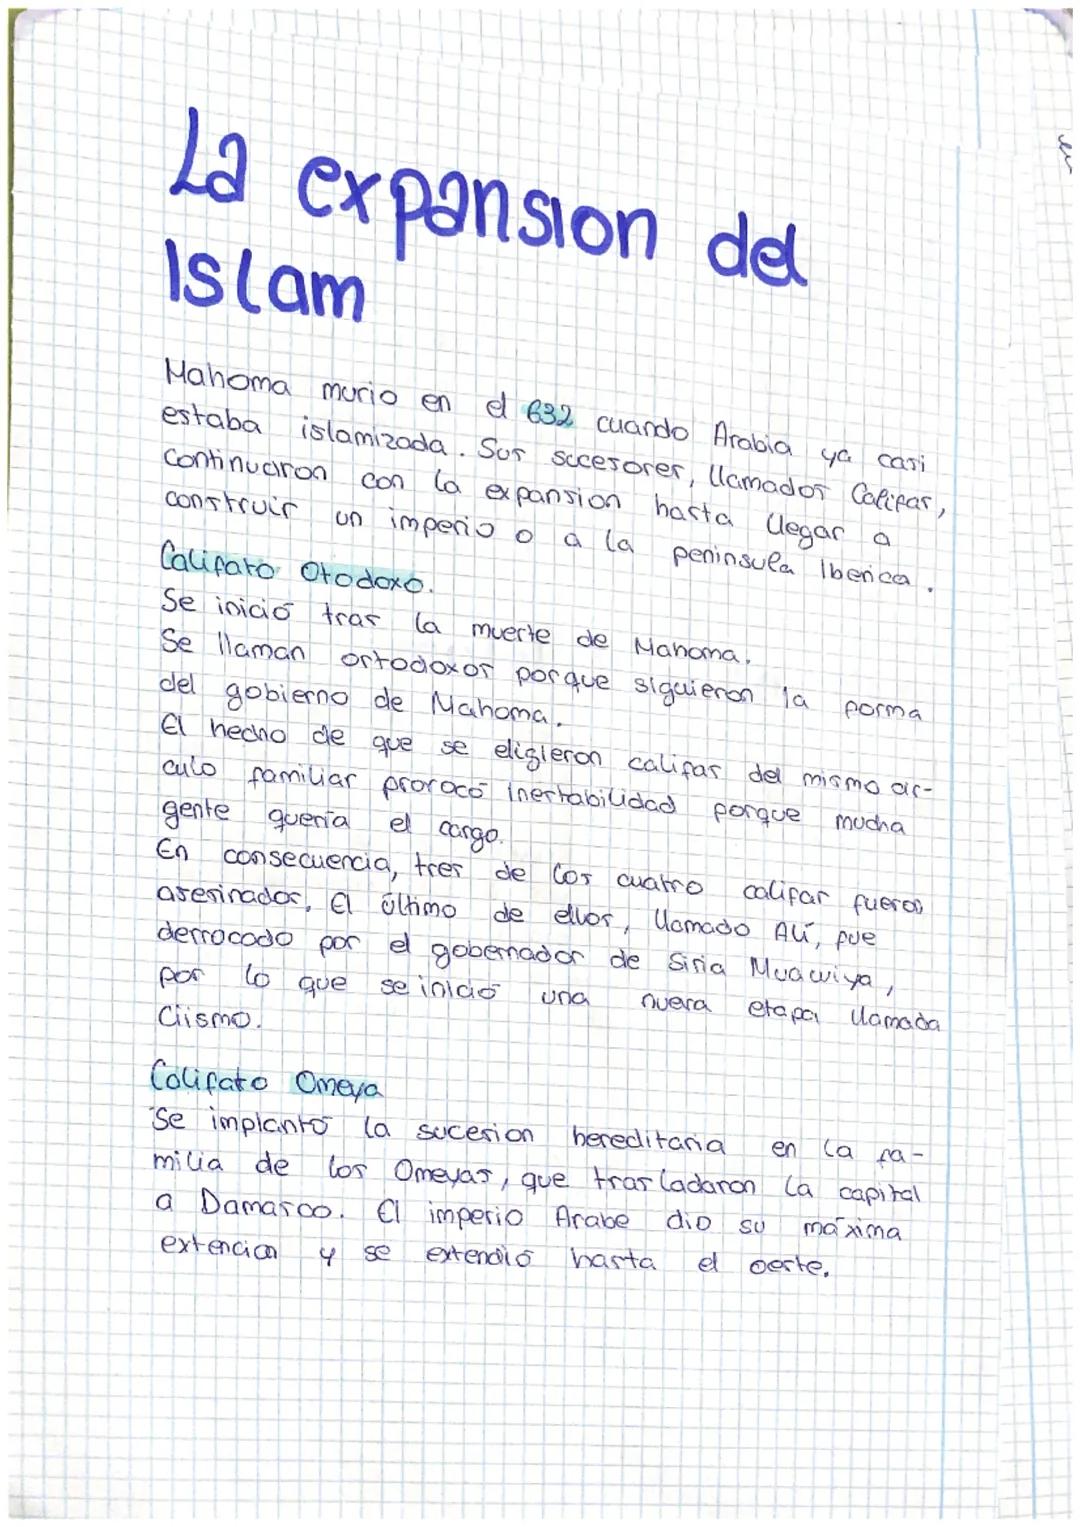 La expansion del
Islam
Mahoma murio en el 632 cuando Arabia ya casi
estaba islamizada. Sus sucesores, llamados Califas,
continuaron con la expansion hasta llegar a
construir un imperio o a la peninsula Iberica.
Califato Otodoxo.
Se inició tras la muerte de Mahoma.
Se llaman ortodoxos porque siguieron la forma
del gobierno de Mahoma.
El hecho de que se eligieron califas del mismo cir-
culo familiar provocó inestabilidad porque mucha
gente quería el cargo.
En consecuencia, tres de los cuatro califas fueron
asesinados. El último de ellos, llamado Alí, fue
derrocado por el gobernador de Siria Muawiya,
por lo que se inició una nueva etapa llamada
Ciismo.
Califato Omeya
Se implantó la sucesion hereditaria en la fa-
milia de los Omeyas, que trasladaron la capital
a Damasco. El imperio Arabe dio su máxima
extencion y se extendió hasta el oeste.